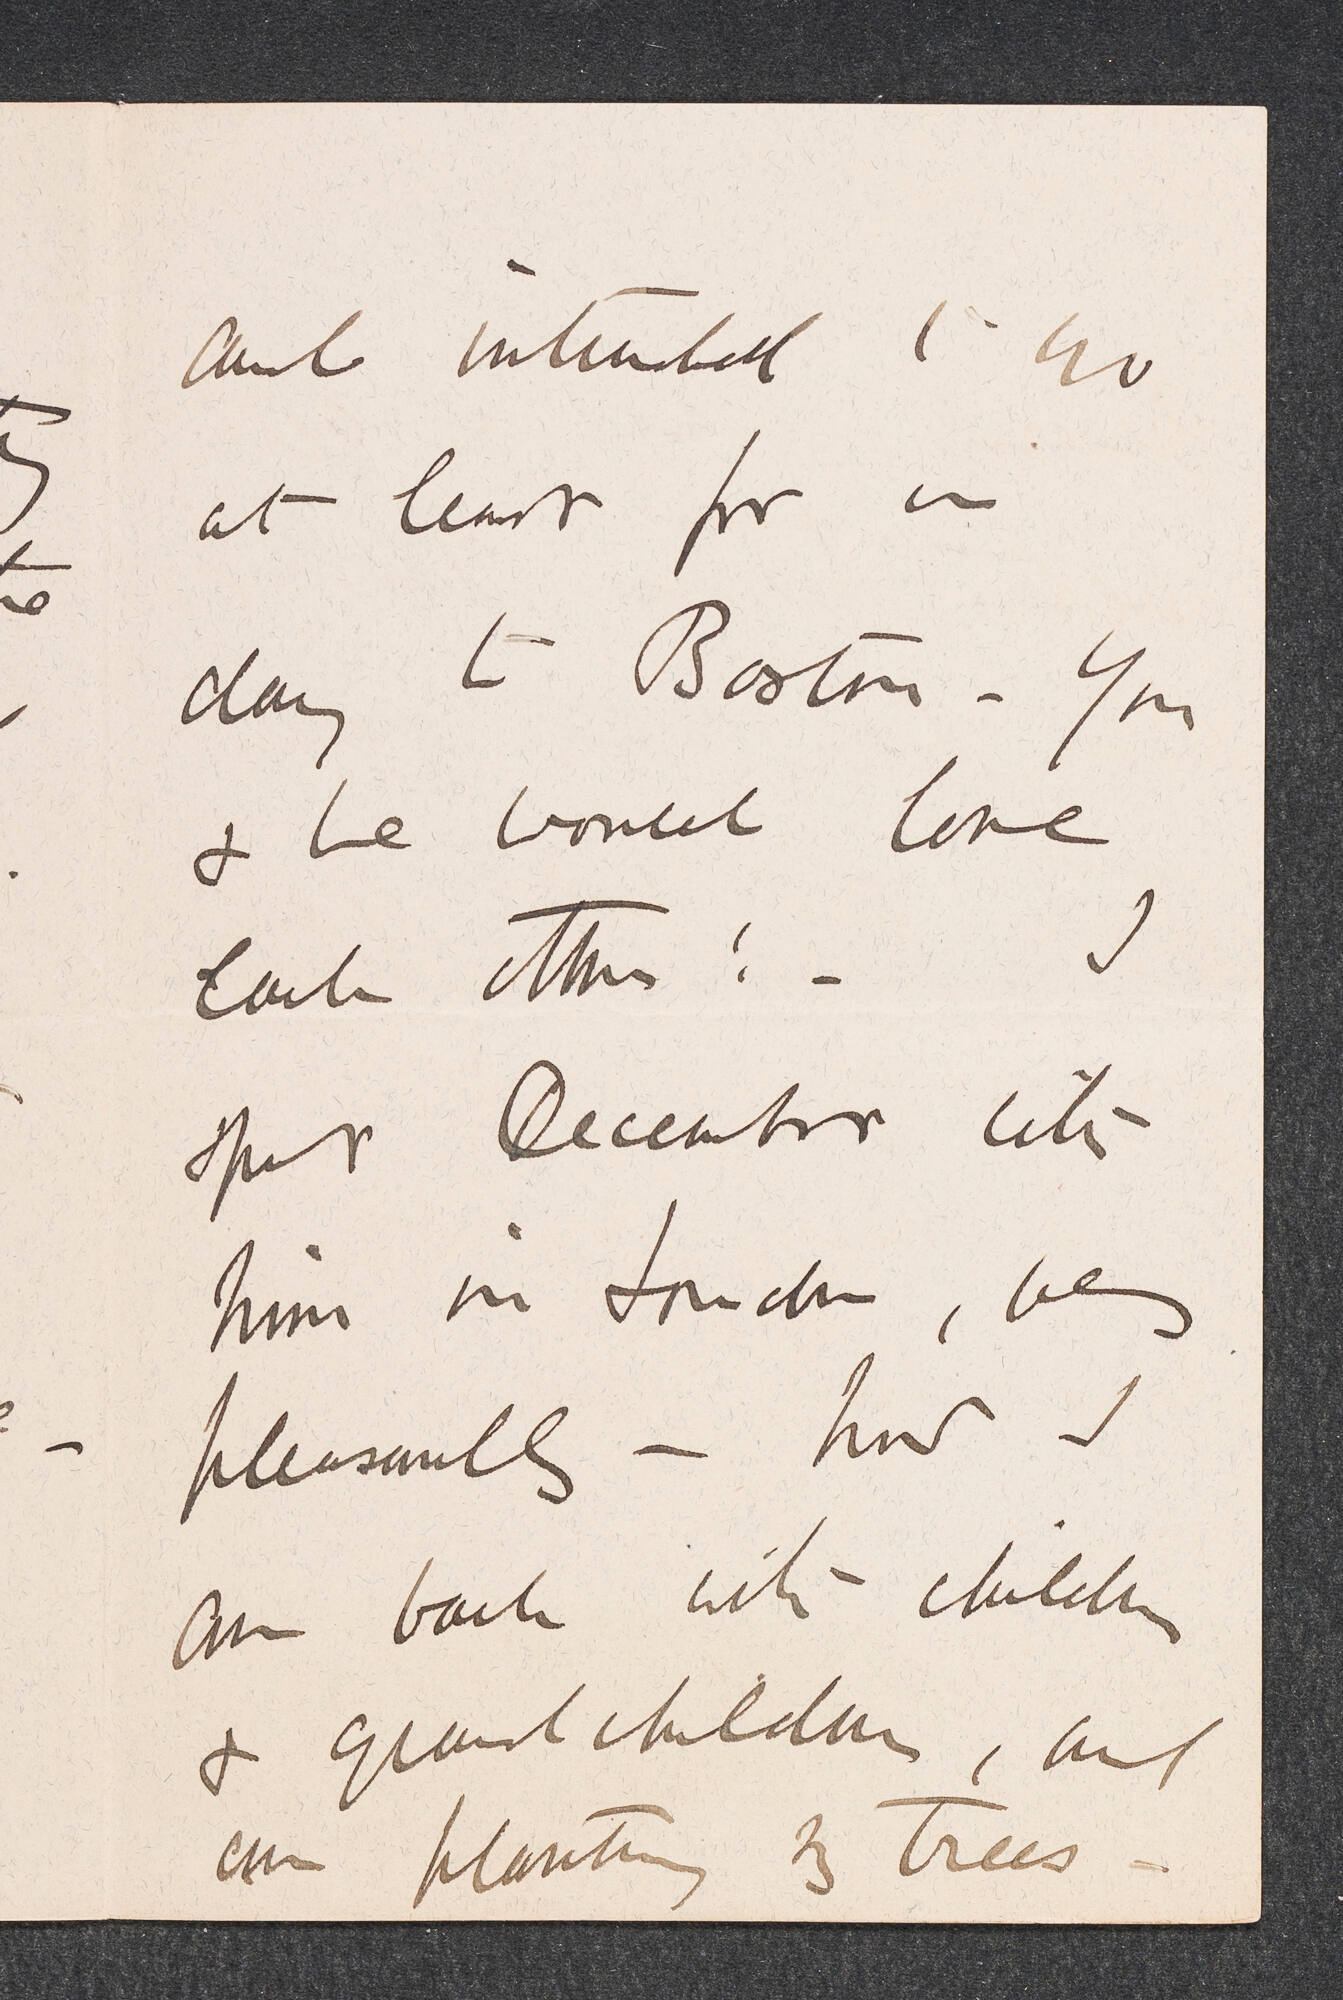 and intended to go
at least for a
day to Boston - You
& he would love
each other! - I
spent December with
him in London, very
pleasantly - now I
am back with children
& grandchildren, and
am planting trees -